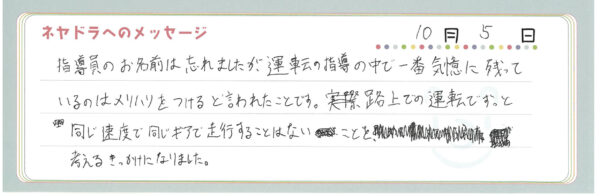 ネヤドラへのメッセージ 10月 5日
指導員のお名前は忘れましたが運転の指導の中で一番気憶に残って
いるのはメリハリをつけると言われたことです。実際路上での運転でずっと
同じ速度で同じギアで走行することはない ことを
考えるきっかけになりました。